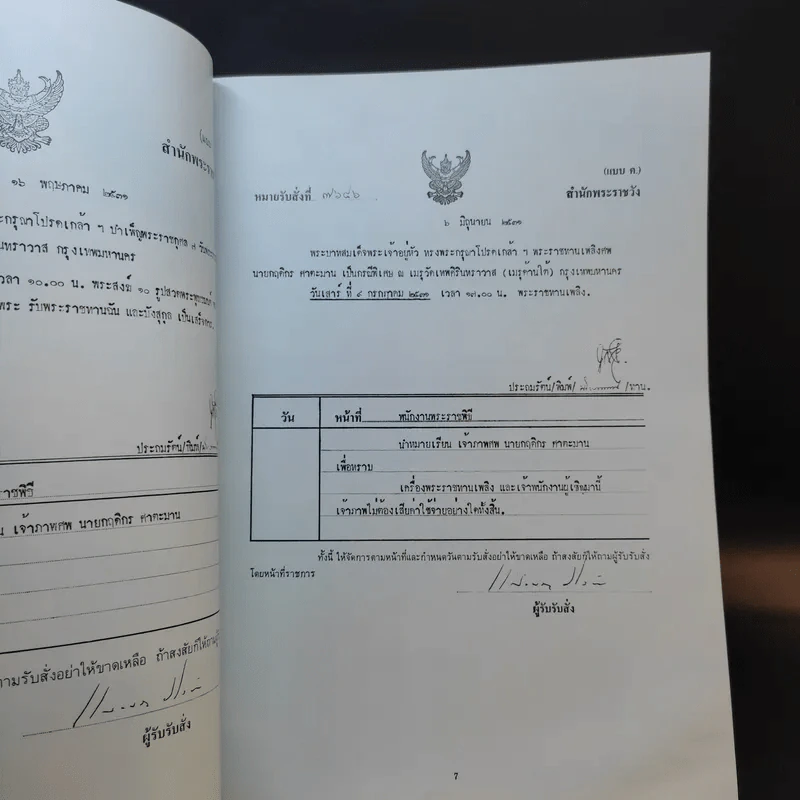 (แบบ
สำนักพระราช
๑๖ พฤษภาคม ๒๕๓๑
ะกรุณาโปรดเกล้า ฯ บำเพ็ญพระราชกุศล ๗ วันพระราช
นทราวาส กรุงเทพมหานคร
วลา ๑๐.๐๐ น. พระสงฆ์ ๑๐ รูปสวดพระพุทธมนต์
พระ รับพระราชทานฉัน และบังสุกุล เป็นเสร็จการ
ประถมรัตน์/พิมพ์/
าชพิธี
น เจ้าภาพศพ นายกฤติกร ศาตะมาน
ตามรับสั่งอย่าให้ขาดเหลือ ถ้าสงสัยก็ให้ถามผู้
ผู้รับรับสั่ง
(แบบ ค.)
หมายรับสั่งที่ ๗๖๔๖ สำนักพระราชวัง
๖ มิถุนายน ๒๕๓๑
พระบาทสมเด็จพระเจ้าอยู่หัว ทรงพระกรุณาโปรดเกล้า ฯ พระราชทานเพลิงศพ
นายกฤติกร ศาตะมาน เป็นกรณีพิเศษ ณ เมรุวัดเทพศิรินทราวาส (เมรุด้านใต้) กรุงเทพมหานคร
วันเสาร์ ที่ ๙ กรกฎาคม ๒๕๓๑ เวลา ๑๗.๐๐ น. พระราชทานเพลิง.
ประถมรัตน์/พิมพ์/ /ทาน.
วัน หน้าที่ พนักงานพระราชพิธี
นำหมายเรียน เจ้าภาพศพ นายกฤติกร ศาตะมาน
เพื่อทราบ
เครื่องพระราชทานเพลิง และเจ้าพนักงานผู้เชิญมานี้
เจ้าภาพไม่ต้องเสียค่าใช้จ่ายอย่างใดทั้งสิ้น.
ทั้งนี้ ให้จัดการตามหน้าที่และกำหนดวันตามรับสั่งอย่าให้ขาดเหลือ ถ้าสงสัยก็ให้ถามผู้รับรับสั่ง
โดยหน้าที่ราชการ
ผู้รับรับสั่ง
7